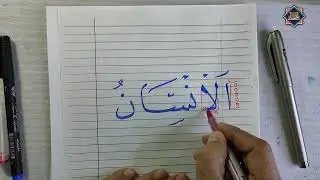 اَلْاِنْسَانُ